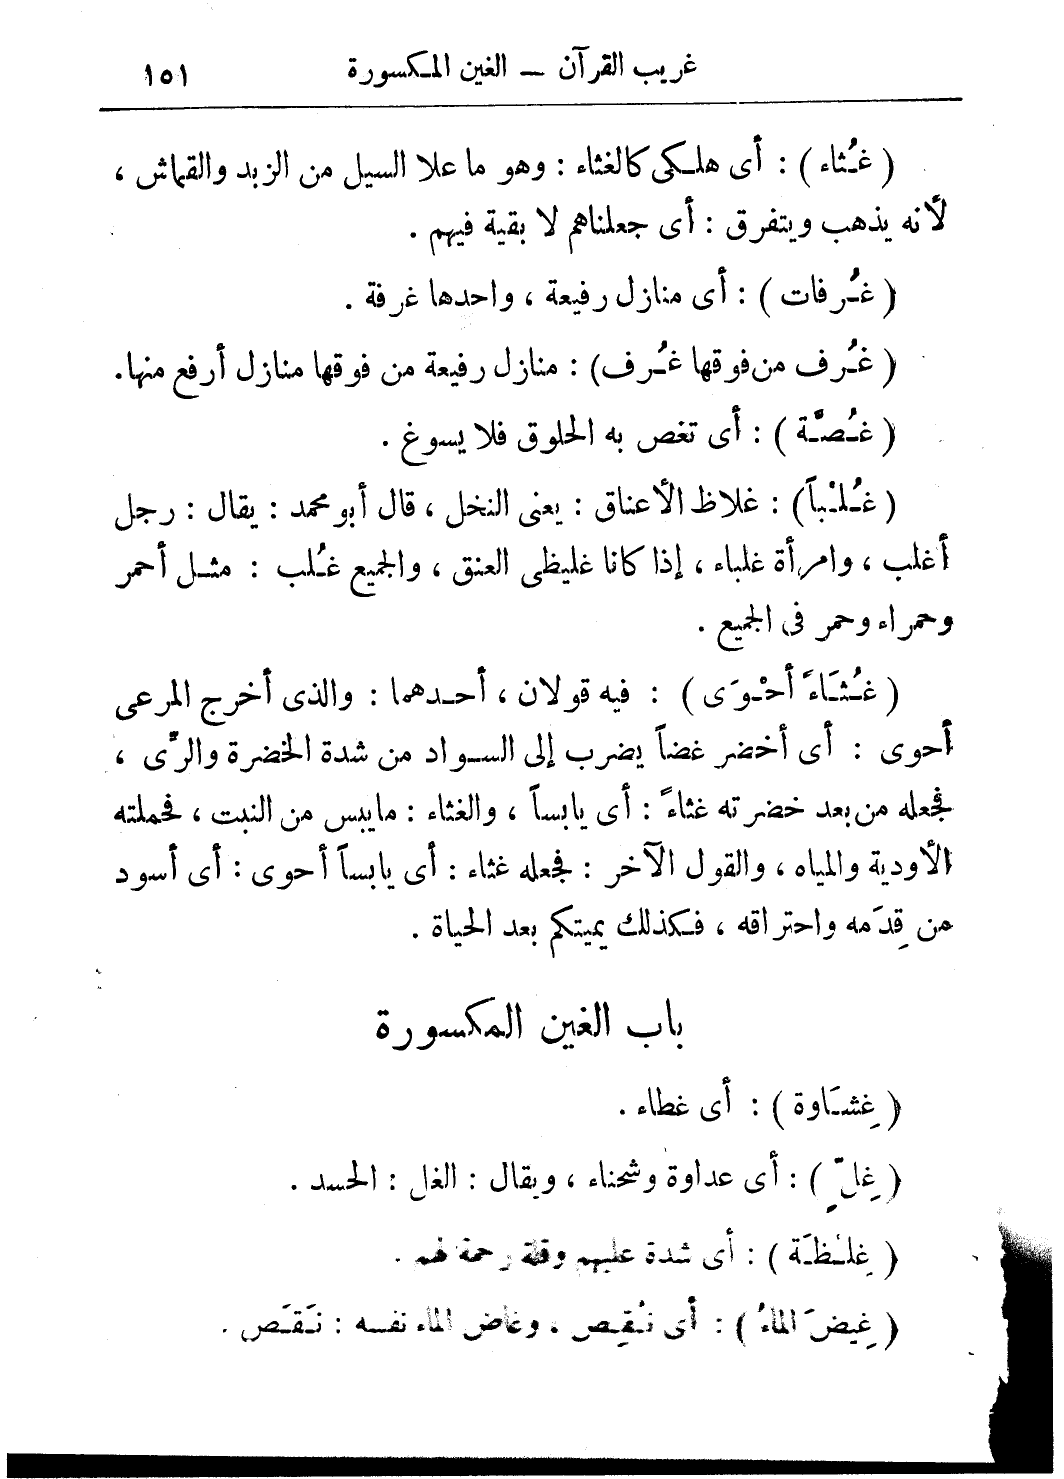 غريب القرآن — الغين المكسورة ١٥١
( غُثاء ) : أى هلكى كالغثاء : وهو ما علا السيل من الزبد والقماش ،
لأنه يذهب ويتفرق : أى جعلناهم لا بقية فيهم .
( غُرفات ) : أى منازل رفيعة ، واحدها غرفة .
( غُرف من فوقها غُرف) : منازل رفيعة من فوقها منازل أرفع منها.
( غُصَّة ) : أى تغص به الحلوق فلا يسوغ .
( غُلْباً) : غلاظ الأعناق : يعنى النخل ، قال أبو محمد : يقال : رجل
أغلب ، وامرأة غلباء ، إذا كانا غليظى العنق ، والجميع غُلب : مثل أحمر
وحمراء وحمر فى الجميع .
( غُثَاءً أحْوَى ) : فيه قولان ، أحدهما : والذى أخرج المرعى
أحوى : أى أخضر غضاً يضرب إلى السواد من شدة الخضرة والرِّى ،
فجعله من بعد خضرته غثاءً : أى يابساً ، والغثاء : مايبس من النبت ، فحملته
الأودية والمياه ، والقول الآخر : فجعله غثاء : أى يابساً أحوى : أى أسود
من قِدَمه واحتراقه ، فكذلك يميتكم بعد الحياة .
باب الغين المكسورة
( غِشَاوة ) : أى غطاء .
( غِلٍّ ) : أى عداوة وشحناء ، ويقال : الغل : الحسد .
( غِلْظَة ) : أى شدة عليهم وقلة رحمة لهم .
( غِيضَ الماءُ ) : أى نُقِص ، وغاض الماء نفسه : نَقَص .